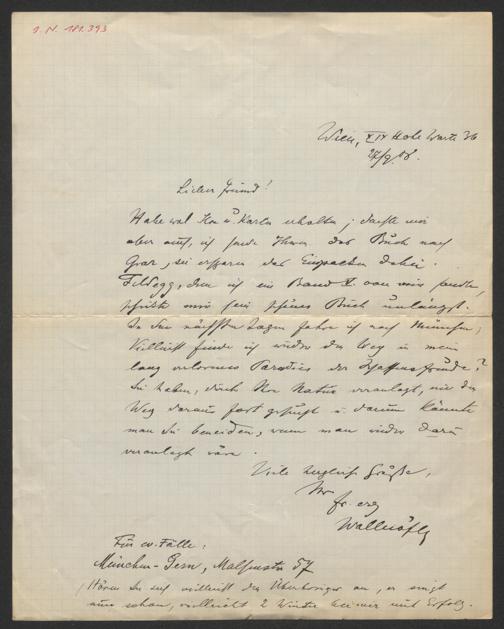 I. N. 181.393
Wien, XIX Hohe Warte 36
27/9. 08.
Lieber Freund!
Habe wol Ihre Karte erhalten; dachte mir
aber auch, ich sende Ihnen das Buch nach
Graz, sie ersparen das Einpacken dabei.
Feldegg, dem ich ein Band X. von mir sandte,
schickte mir sein schönes Buch unlängst.
In den nächsten Tagen fahre ich nach München;
Vielleicht finde ich wieder den Weg in mein
lang verlorenes Paradies der Schaffensfreude?
Sie haben, durch Ihre Natur veranlagt, nie den
Weg daraus fort gesucht u. darum könnte
man Sie beneiden, wenn man wieder dazu
veranlagt wäre.
Viele herzliche Grüße,
Ihr
erg
Für w. Fälle:
München-Gern, Malsenstr 57
Hören Sie sich vielleicht den an, er singt
nun schon, vielleicht 2 Winter mit Erfolg.